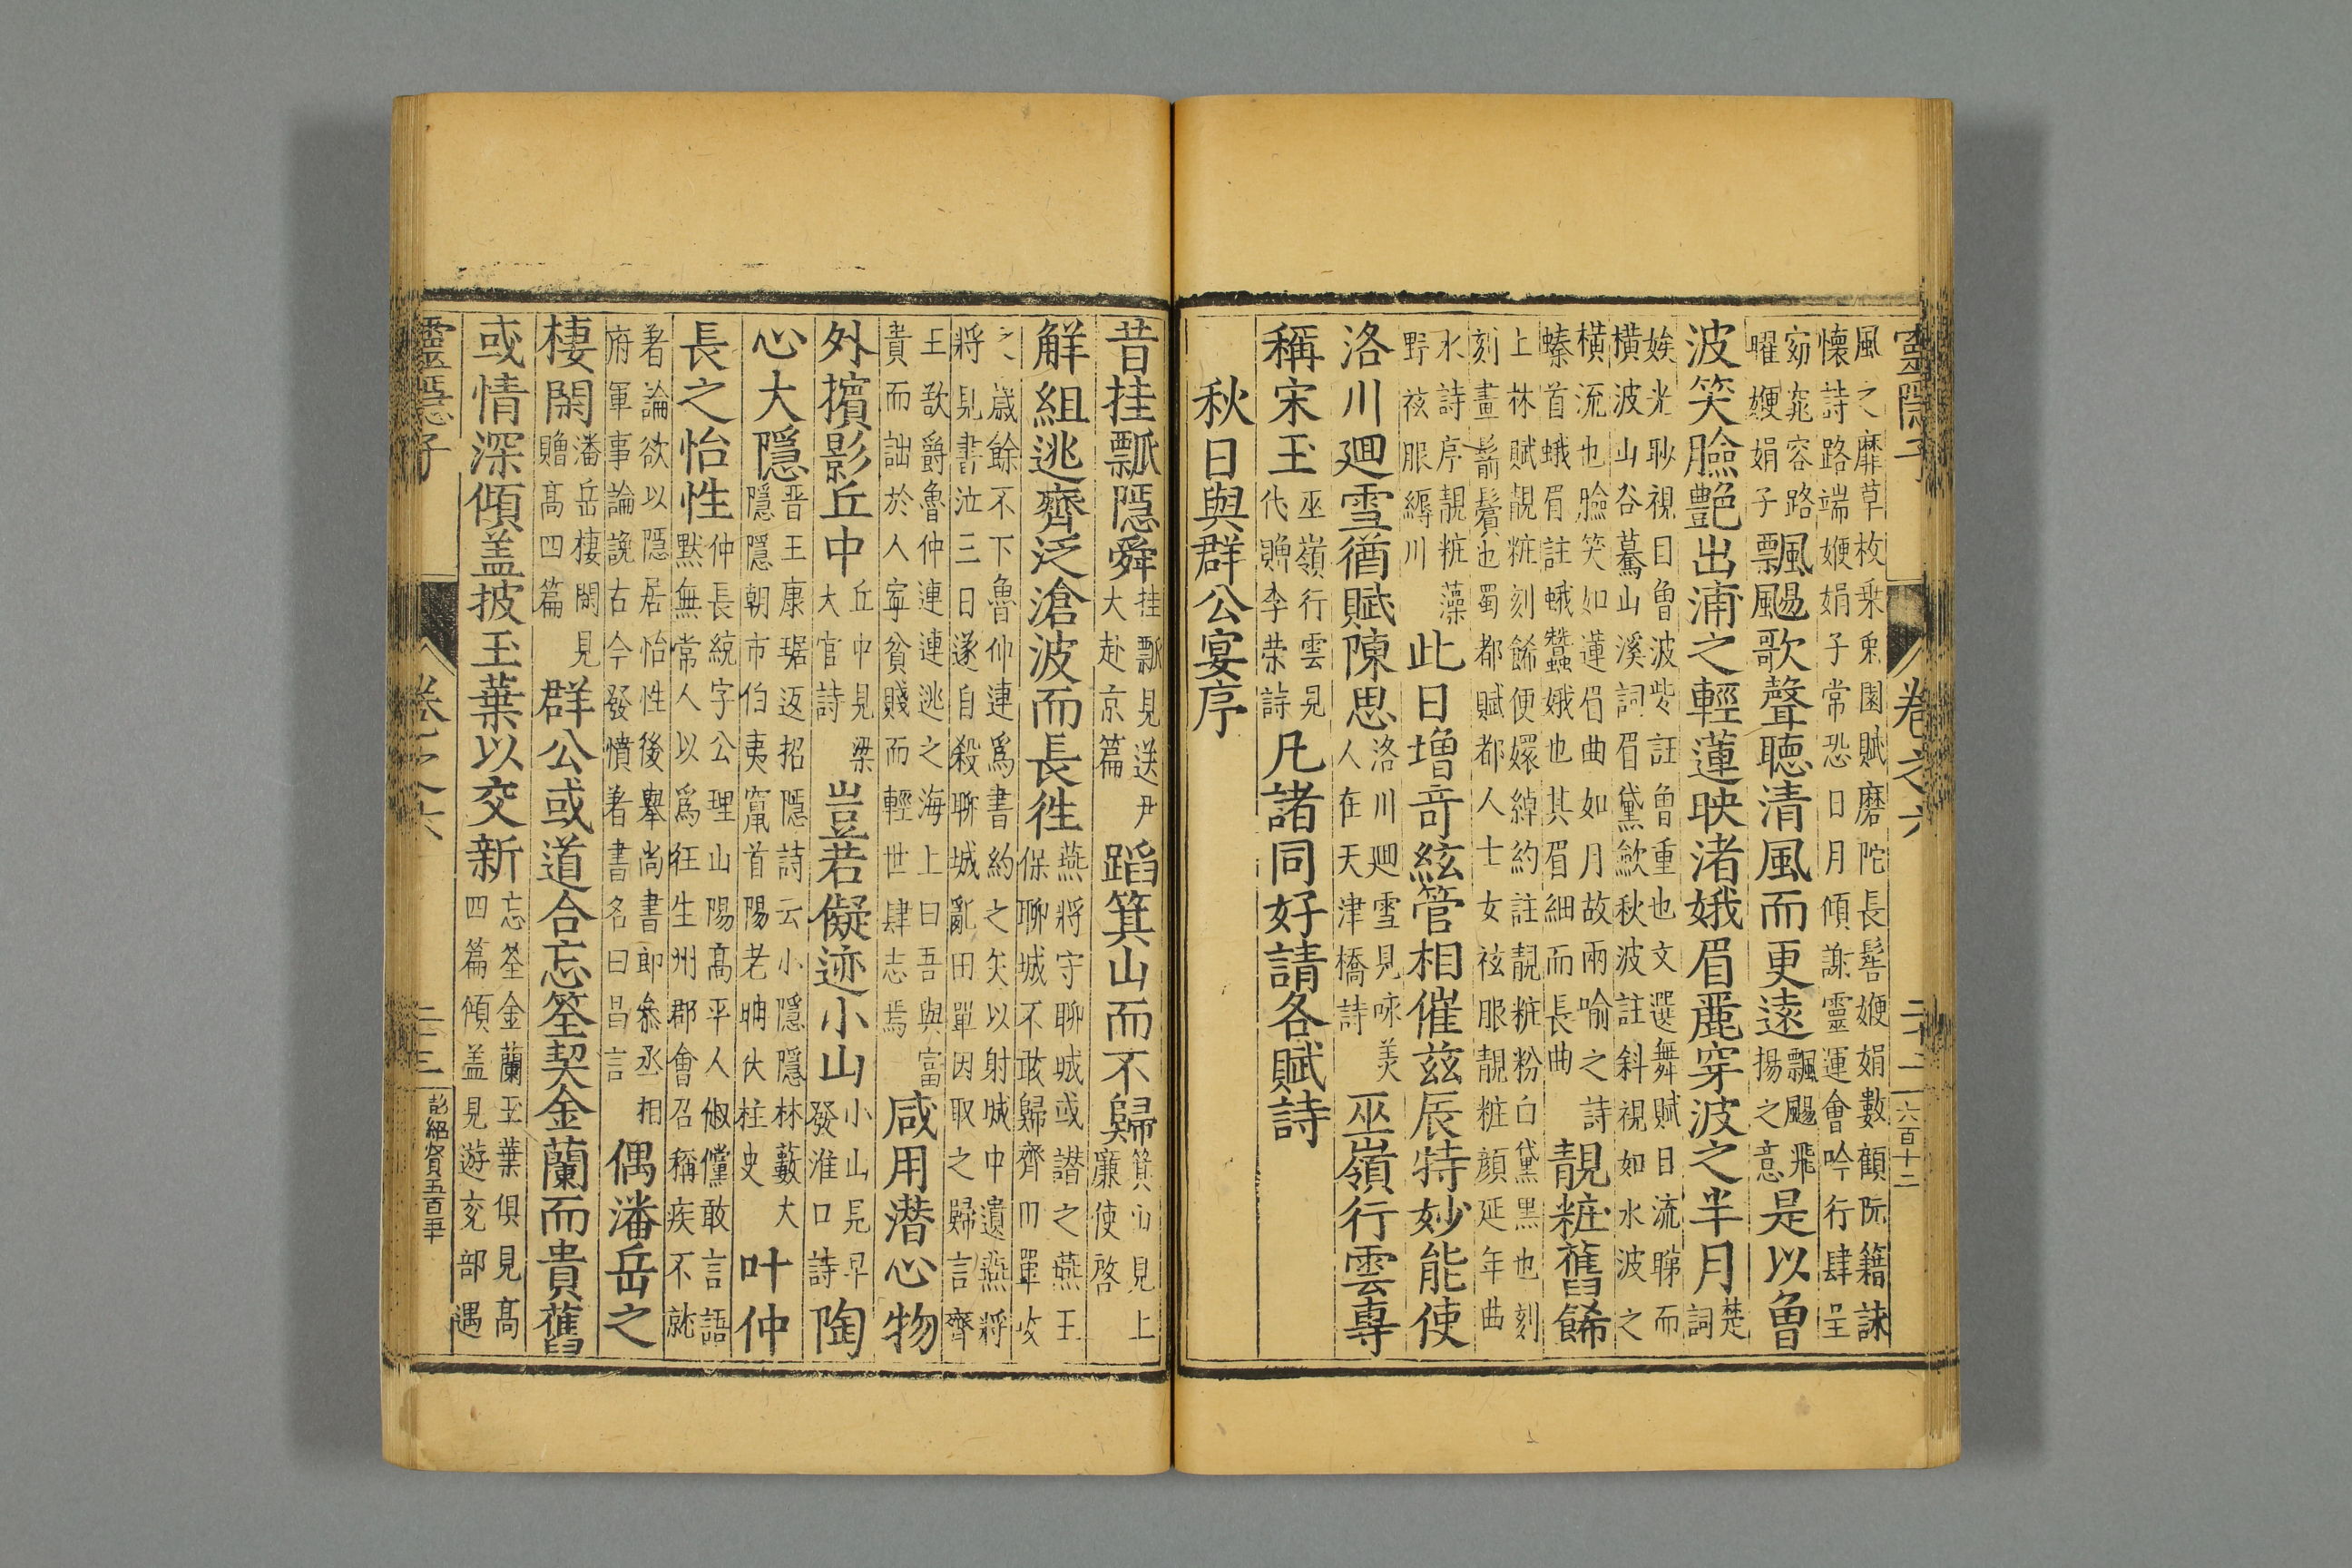 靈隱子
卷之六
六百十二
風之靡草枚乗兎園賦磨陀長髻㛹娟數顧阮籍詠
懷詩路端㛹娟子常恐日月傾謝靈運會吟行肆呈
窈窕容路
曜㛹娟子
飄颺歌聲聽清風而更遠
飄颺飛
揚之意
是以魯
波笑臉艷出浦之輕蓮映渚娥眉麗穿波之半月
楚
詞
娭光眇視目魯波些註魯重也文選舞賦目流睇而
橫波山谷驀山溪詞眉黛歛秋波註斜視如水波之
橫流也臉笑如蓮眉曲如月故兩喻之詩
螓首蛾眉註蛾蠶蛾也其眉細而長曲
靚粧舊餙
上林賦靚粧刻餙便嬛綽約註靚粧粉白黛黑也刻
刻畫鬋鬢也蜀都賦都人士女袨服靚粧顔延年曲
水詩序靚粧藻
野袨服縟川
此日增竒絃管相催兹辰特妙能使
洛川廻雪猶賦陳思
洛川廻雪見咏美
人在天津橋詩
巫嶺行雲專
稱宋玉
巫嶺行雲見
代贈李荣詩
凡諸同好請各賦詩
秋日與群公宴序
昔挂瓢隱舜
挂瓢見送尹
大赴京篇
蹈箕山而不歸
箕山見上
廉使啓
觧組逃齊泛滄波而長徃
燕將守聊城或譛之燕王
保聊城不敢歸齊田單攻
之歲餘不下魯仲連爲書約之矢以射城中遺燕將
將見書泣三日遂自殺聊城亂田單因取之歸言齊
王欲爵魯仲連連逃之海上曰吾與富
貴而詘於人寧貧賤而輕世肆志焉
咸用潛心物
外擯影丘中
丘中見梁
大官詩
豈若儗迹小山
小山見早
發淮口詩
陶
心大隱
晋王康琚返招隱詩云小隱隱林藪大
隱隱朝市伯夷竄首陽老聃伏柱史
叶仲
長之怡性
仲長統字公理山陽高平人俶儻敢言語
默無常人以爲狂生州郡會召稱疾不就
著論欲以隱居怡性後舉尚書郎叅丞相
府軍事論說古今發憤著書名曰昌言
偶潘岳之
棲閑
潘岳棲閑見
贈高四篇
群公或道合忘筌契金蘭而貴舊
或情深傾盖披玉葉以交新
忘筌金蘭玉葉俱見高
四篇傾盖見遊兖部遇
靈隱子
卷之六
二十三